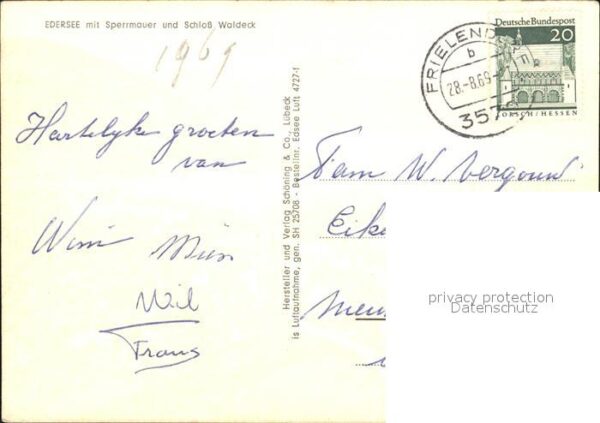 EDERSEE mit Sperrmauer und Schloß Waldeck
1969
Hartelyke groeten
van
Wim Mien
Wil
Frans
Hersteller und Verlag Schöning & Co., Lübeck
is Luftaufnahme, gen. SH 25708 - Bestellnr. Edsee Luft 4727-1
FRIELEND
b
28.-8.69
357
Deutsche Bundespost
20
LORSCH/HESSEN
Fam W. Vergouw
Eike
privacy protection
Datenschutz